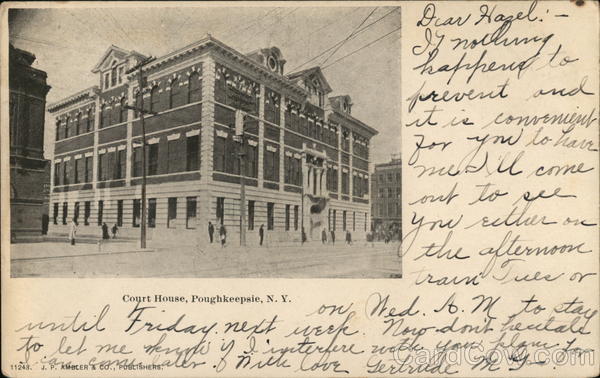 Dear Hazel:-
If nothing
happens to
prevent and
it is convenient
for you to have
me I'll come
out to see
you either on
the afternoon
train Tues or
on Wed. A.M to stay
until Friday next week. Now don't hesitate
to let me know if I interfere with your plans for
I can come later. With love Gertrude M.
Court House, Poughkeepsie, N. Y.
11243. J. P. AMBLER & CO., PUBLISHERS.
CardCow.com